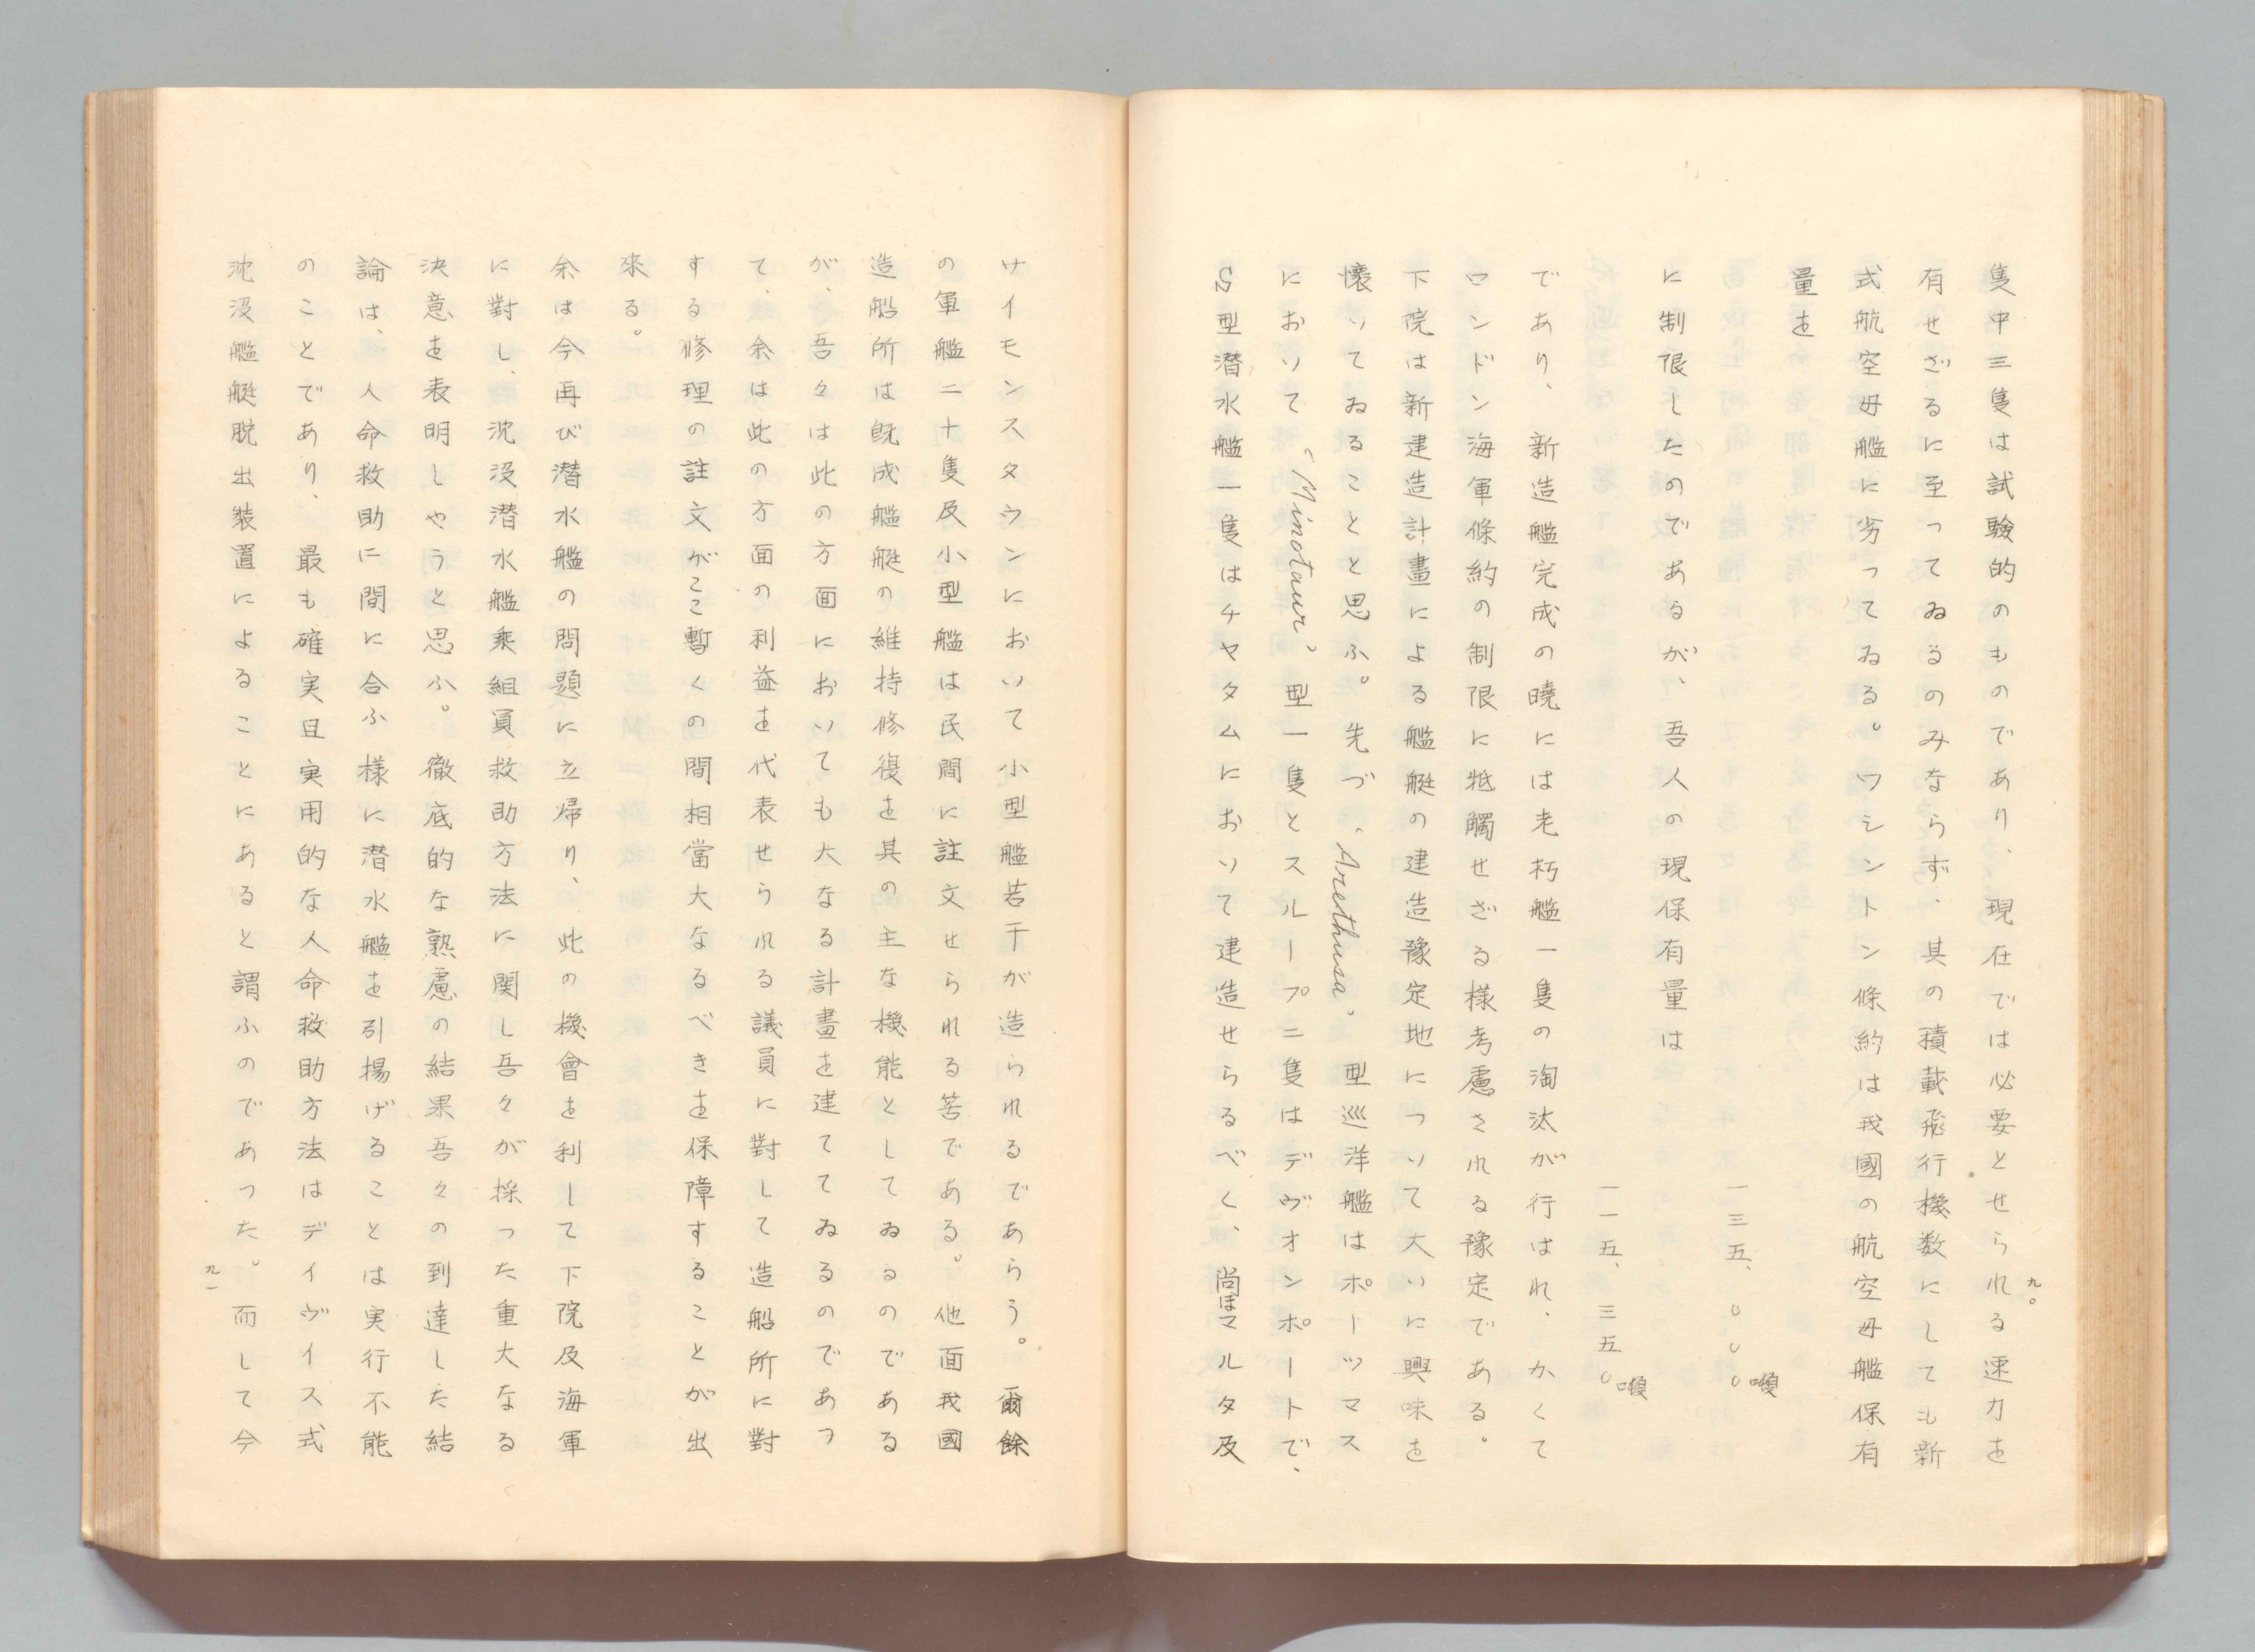 九〇
隻中三隻は試験的のものであり、現在では必要とせられる速力を
有せざるに至つてゐるのみならず、其の積載飛行機数にしても新
式航空母艦に劣つてゐる。ワシントン條約は我國の航空母艦保有
量を
一三五、〇〇〇噸
に制限したのであるが、吾人の現保有量は
一一五、三五〇噸
であり、新造艦完成の曉には老朽艦一隻の淘汰が行はれ、かくて
ロンドン海軍條約の制限に牴觸せざる様考慮される豫定である。
下院は新建造計畫による艦艇の建造豫定地について大いに興味を
懐いてゐることと思ふ。先づ、"Arethusa"型巡洋艦はポーツマス
において"Minotaur"型一隻とスループ二隻はデヴオンポートで、
S型潜水艦一隻はチヤタムにおいて建造せらるべく、尚ほマルタ及
サイモンスタウンにおいて小型艦若干が造られるであらう。爾餘
の軍艦二十隻及小型艦は民間に註文せられる筈である。他面我國
造船所は既成艦艇の維持修復を其の主な機能としてゐるのである
が、吾々は此の方面においても大なる計畫を建ててゐるのであつ
て、余は此の方面の利益を代表せられる議員に對して造船所に對
する修理の註文がここ暫くの間相當大なるべきを保障することが出
來る。
余は今再び潜水艦の問題に立帰り、此の機會を利して下院及海軍
に對し、沈没潜水艦乘組員救助方法に関し吾々が採つた重大なる
決意を表明しやうと思ふ。徹底的な熟慮の結果吾々の到達した結
論は、人命救助に間に合ふ様に潜水艦を引揚げることは実行不能
のことであり、最も確実且実用的な人命救助方法はデイヴイス式
沈没艦艇脱出装置によることにあると謂ふのであつた。而して今
九一